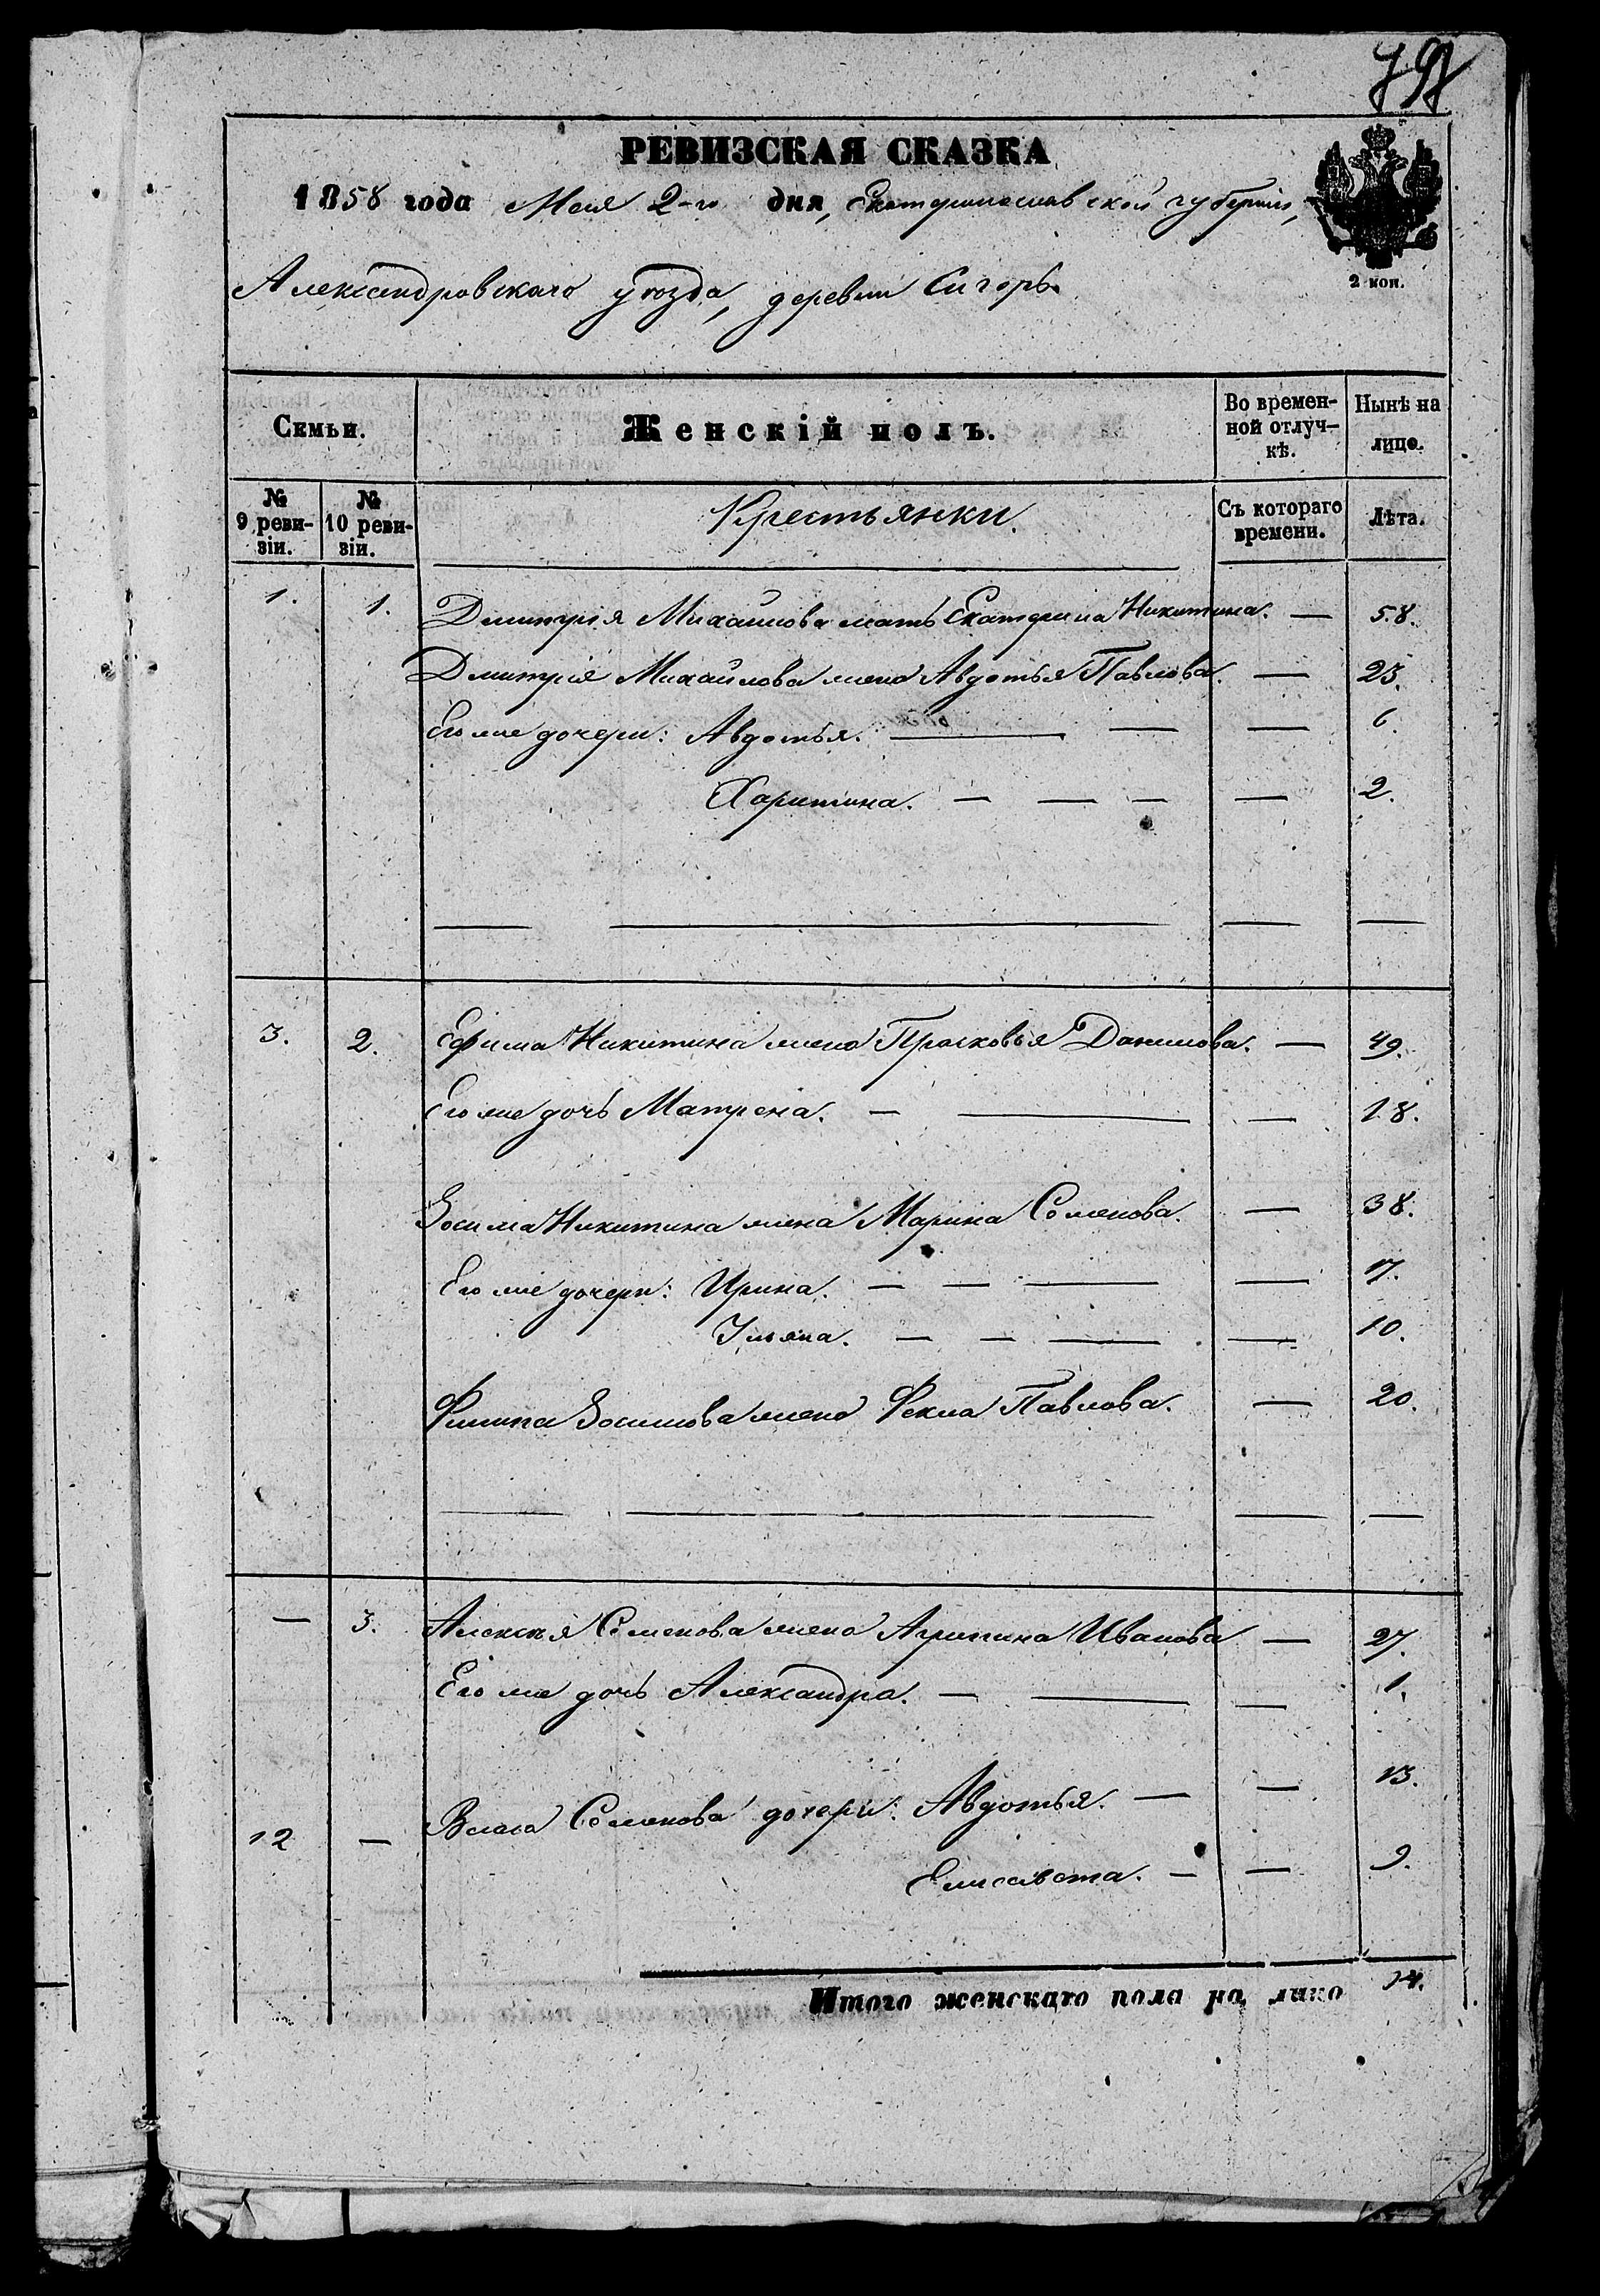 РЕВИЗСКАЯ СКАЗКА
1858 года Мая 2-го дня, Екатеринославской губерніи,
2 коп.
Александровскаго уѣзда, деревни Сигоръ
Семьи.
Женскій полъ.
Во времен-
ной отлуч-
кѣ.
Нынѣ на
лице.
№
9 реви-
зіи.
№
10 реви-
зіи.
Крестьянки.
Съ котораго
времени.
Лѣта.
1. 1. Дмитрія Михайлова мать Екатерина Никитина. — 58.
Дмитрія Михайлова жена Авдотья Павлова. — 25.
Его же дочери: Авдотья. — — — 6.
Харитина. — — — — 2.
3. 2. Ефима Никитина жена Прасковья Данилова. — 49.
Его же дочь Матрена. — — — 18.
Зосима Никитина жена Марина Семенова. — 38.
Его же дочери: Ирина. — — — — 17.
Ульяна. — — — — 10.
Филипа Зосимова жена Фекла Павлова. — 20.
— 3. Алексѣя Семенова жена Агрипина Иванова — 27.
Его же дочь Александра. — — — 1.
12 — Власа Семенова дочери: Авдотья. — — 13.
Елисавета. — — 9.
Итого женскаго пола на лицо 14.